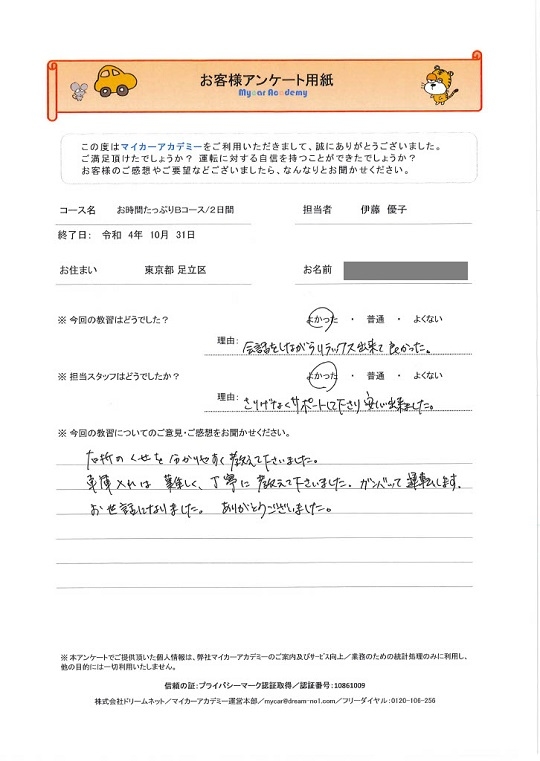 お客様アンケート用紙
Mycar Academy
この度はマイカーアカデミーをご利用いただきまして、誠にありがとうございました。
ご満足頂けたでしょうか? 運転に対する自信を持つことができたでしょうか?
お客様のご感想やご要望などございましたら、なんなりとお聞かせください。
コース名 お時間たっぷりBコース/2日間 担当者 伊藤 優子
終了日: 令和 4年 10月 31日
お住まい 東京都 足立区 お名前
※ 今回の教習はどうでした? よかった ・ 普通 ・ よくない
理由: 会話をしながらリラックス出来て良かった。
※ 担当スタッフはどうでしたか? よかった ・ 普通 ・ よくない
理由: さりげなくサポートして下さり安心出来ました。
※ 今回の教習についてのご意見・ご感想をお聞かせください。
のくせを分かりやすく教えて下さいました。
車庫入れは 難しく、丁寧に教えて下さいました。ガンバって運転します。
お世話になりました。ありがとうございました。
※ 本アンケートでご提供頂いた個人情報は、弊社マイカーアカデミーのご案内及びサービス向上/業務のための統計処理のみに利用し、
他の目的には一切利用いたしません。
信頼の証:プライバシーマーク認証取得/認証番号:10861009
株式会社ドリームネット/マイカーアカデミー運営本部/mycar@dream-no1.com/フリーダイヤル:0120-106-256